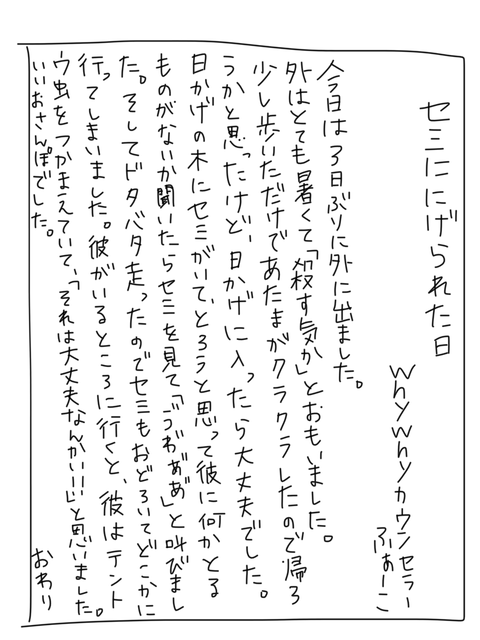 セミににげられた日
WhyWhyカウンセラー
ふぁーこ
今日は3日ぶりに外に出ました。
外はとても暑くて「殺す気か」とおもいました。
少し歩いただけであたまがクラクラしたので帰ろ
うかと思ったけど、日かげに入ったら大丈夫でした。
日かげの木にセミがいて、とろうと思って彼に何かとる
ものがないか聞いたらセミを見て「ゔわ゙ぁあ゙」と叫びまし
た。そしてドタバタ走ったのでセミもおどろいてどこかに
行ってしまいました。彼がいるところに行くと、彼はテント
ウ虫をつかまえていて、「それは大丈夫なんかい!!」と思いました。
いいおさんぽでした。
おわり